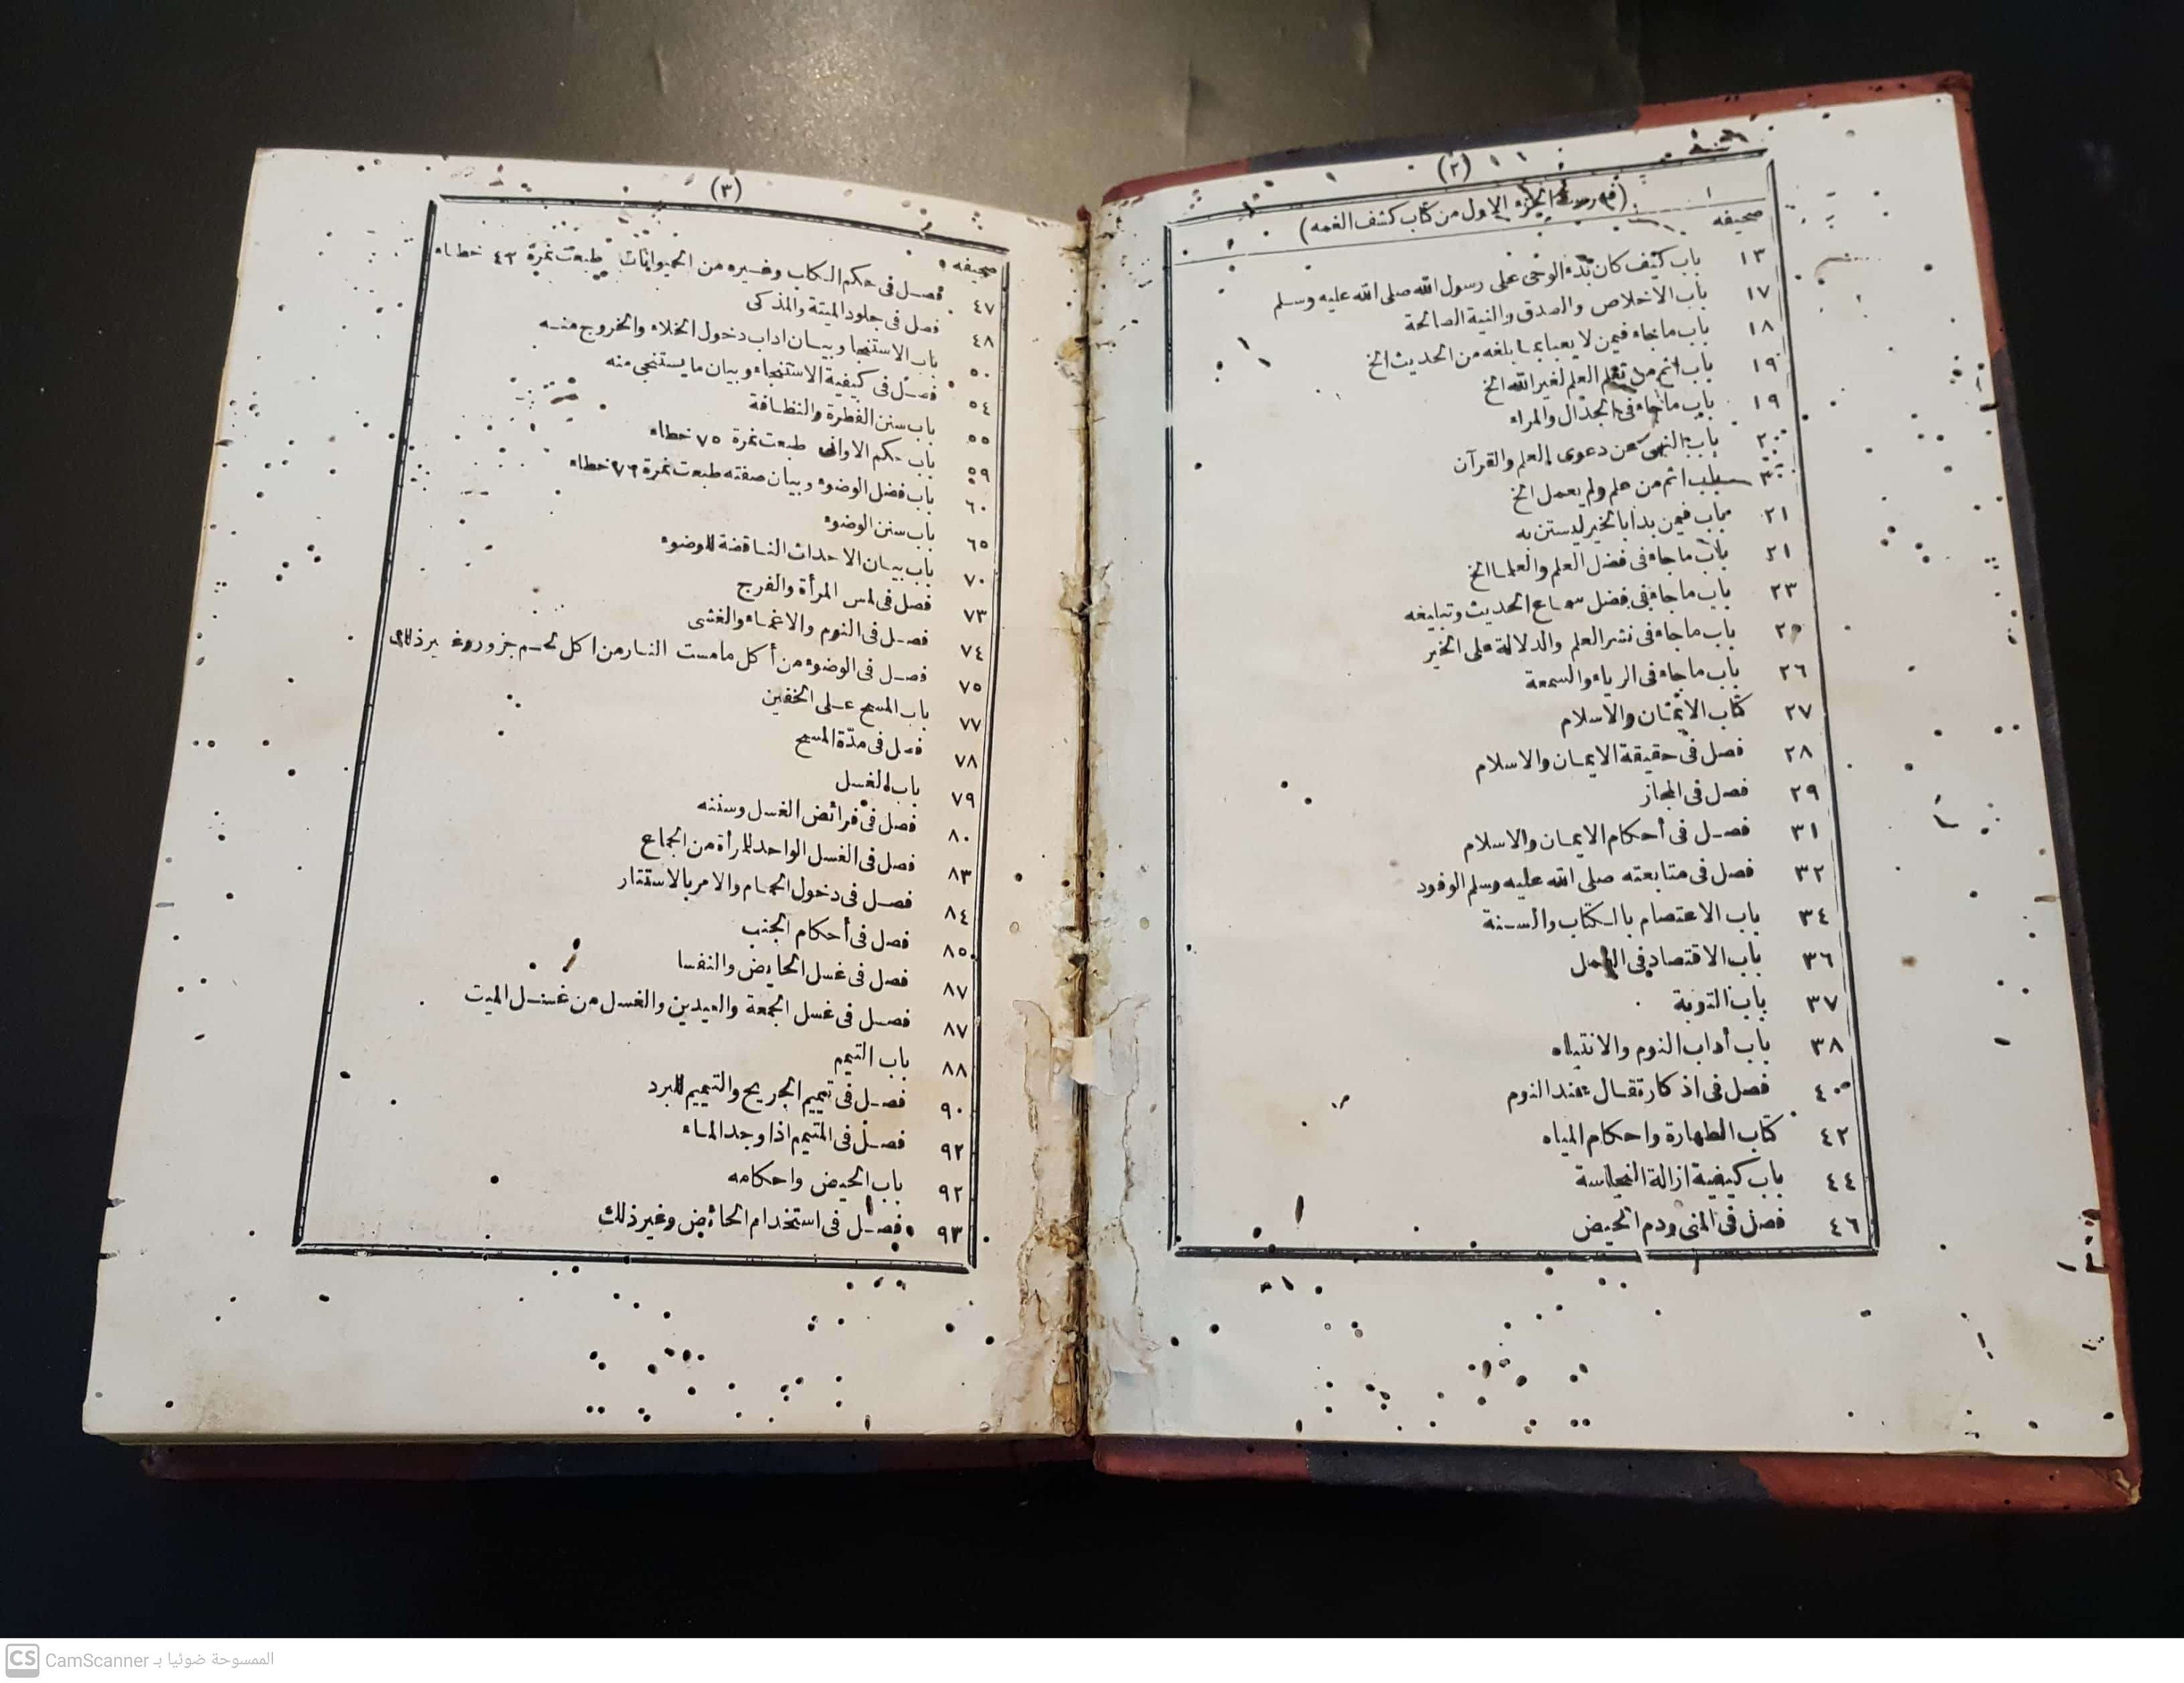 (٢)
(فهرست الجزء الاول من كتاب كشف الغمه)
صحيفه
١٣ باب كيف كان بدء الوحى على رسول الله صلى الله عليه وسلم
١٧ باب الاخلاص والصدق والنية الصالحة
١٨ باب ماجاء فيمن لا يعبا بما بلغه من الحديث الخ
١٩ باب اثم من تعلم العلم لغير الله الخ
١٩ باب ماجاء فى الجدال والمراء
٢٠ باب النهى عن دعوى العلم والقرآن
٢٠ باب اثم من علم ولم يعمل الخ
٢١ باب فيمن بدا بالخير ليستن به
٢١ باب ماجاء فى فضل العلم والعلما الخ
٢٣ باب ماجاء فى فضل سماع الحديث وتبليغه
٢٥ باب ماجاء فى نشر العلم والدلالة على الخير
٢٦ باب ماجاء فى الرياء والسمعة
٢٧ كتاب الايمان والاسلام
٢٨ فصل فى حقيقة الايمان والاسلام
٢٩ فصل فى المجاز
٣١ فصل فى أحكام الايمان والاسلام
٣٢ فصل فى متابعته صلى الله عليه وسلم الوفود
٣٤ باب الاعتصام بالكتاب والسنة
٣٦ باب الاقتصاد فى العمل
٣٧ باب التوبة
٣٨ باب أداب النوم والانتباه
٤٠ فصل فى اذكار تقال عند النوم
٤٢ كتاب الطهارة واحكام المياه
٤٤ باب كيفية ازالة النجاسة
٤٦ فصل فى المنى ودم الحيض
(٣)
صحيفه
٤٧ فصل فى حكم الكاب وغيره من الحيوانات طبعت نمرة ٤٣ خطاء
٤٨ فصل فى جلود الميتة والمذكى
٥٠ باب الاستنجا وبيان اداب دخول الخلاء والخروج منه
٥٤ فصل فى كيفية الاستنجاء وبيان ما يستنجى منه
٥٥ باب سنن الفطرة والنظافة
٥٩ باب حكم الاوانى طبعت نمرة ٧٥ خطاء
٦٠ باب فضل الوضوء وبيان صفته طبعت نمرة ٧٦ خطاء
٦٥ باب سنن الوضوء
٧٠ باب بيان الاحداث الناقضة للوضوء
٧٣ فصل فى لمس المرأة والفرج
٧٤ فصل فى النوم والاغماء والغشى
٧٥ فصل فى الوضوء من أكل مامست النار من اكل لحم جزور وغير ذلك
٧٧ باب المسح على الخفين
٧٨ فصل فى مدّة المسح
٧٩ باب الغسل
٨٠ فصل فى فرائض الغسل وسننه
٨٣ فصل فى الغسل الواحد للمرأة من الجماع
٨٤ فصل فى دخول الحمام والامر بالاستتار
٨٥ فصل فى أحكام الجنب
٨٧ فصل فى غسل الحايض والنفسا
٨٧ فصل فى غسل الجمعة والعيدين والغسل من غسل الميت
٨٨ باب التيمم
٩٠ فصل فى تيمم الجريح والتيمم للبرد
٩٢ فصل فى المتيمم اذا وجد الماء
٩٢ باب الحيض واحكامه
٩٣ فصل فى استخدام الحائض وغير ذلك
CS CamScanner الممسوحة ضوئيا بـ